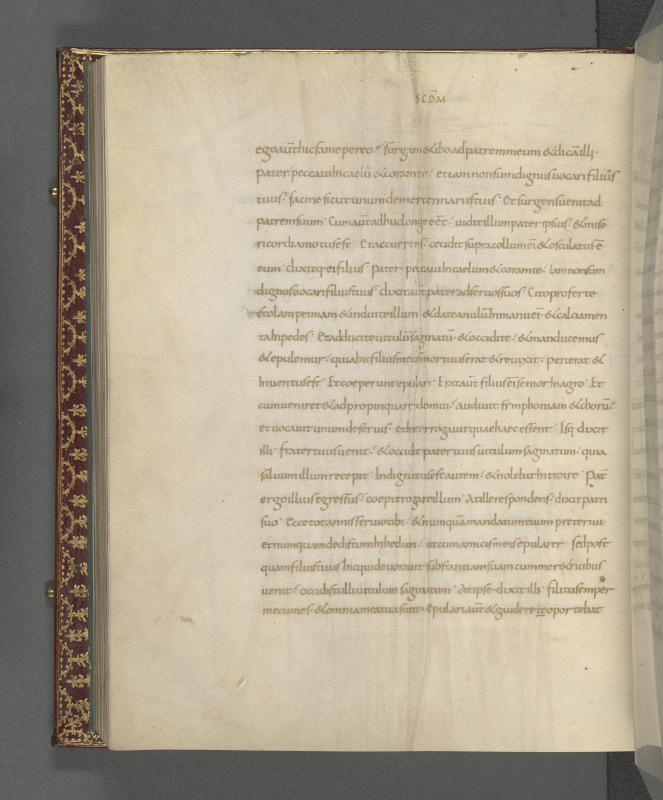 SCDM
ego aūt hic fame pereo · surgam & ibo ad patrem meum & dicā illi ·
pater peccavi In caelū & coram te · et iam non sum dignus vocari filius
tuus · fac me sicut unum de mercennariis tuis · Et surgens venit ad
patrem suum · Cum aūt adhuc longe eēt · vidit illum pater ipsius · & mise
ricordia motus est · Et accurrens cecidit supra collum eī & osculatus ē
eum · dixitq; ei filius · pater · peccavi In caelum & coram te · Iam non sum
dignus vocari filius tuus · dixit aūt pater ad servos suos · Cito proferte
stolam primam & induite illum · & date anulū In manu eī · & calciamen
ta In pedes · Et adducite vitulū saginatū · & occidite · & manducemus
& epulemur · quia hic filius meus mortuus erat & revixit · perierat &
Inventus est · Et coeperunt epulari · Erat aūt filius eī senior In agro · Et
cum veniret & adpropinquar& domui · audivit symphoniam & chorū ·
et vocavit unum de servis · et Interrogavit quae haec essent · Isq dixit
illi · frater tuus venit · & occidit pater tuus vitulum saginatum · quia
salvum illum recepit · Indignatus est autem · & nolebat Introire · Pat
ergo illius egressus · coepit rogare illum · At ille respondens · dixit patri
suo · Ecce tot annis servio tibi · & numquā mandatum tuum preterivi ·
et numquam dedisti mihi hedum · ut cum amicis meis epularer · sed post
quam filius tuus hic qui devoravit substantiam suam cum mer&ricibus
venit · occidisti illi vitulum saginatum · At ipse dixit illi · fili tu semper
mecum es · & omnia mea tua sunt · epulari aūt & gaudere te oportebat